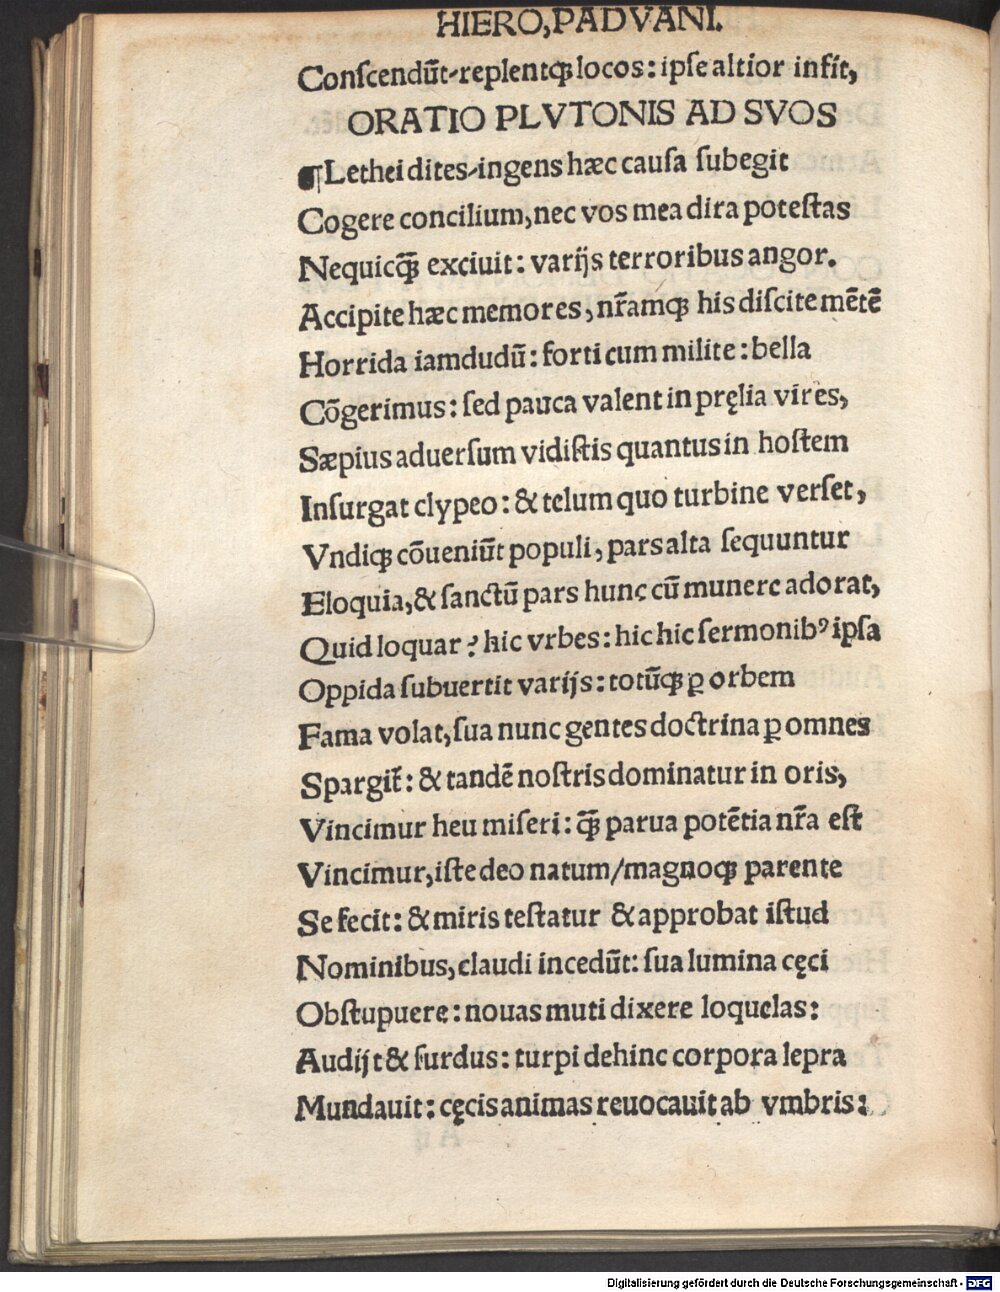 HIERO,PADVANI.
Conſcendūt-replentqꝫ locos: ipſe altior infit,
ORATIO PLVTONIS AD SVOS
¶Lethei dites-ingens hæc cauſa ſubegit
Cogere concilium, nec vos mea dira poteſtas
Nequicq̃ꝫ exciuit: varijs terroribus angor.
Accipite hæc memores, nr̃amqꝫ his diſcite mētē
Horrida iamdudū: forti cum milite: bella
Cōgerimus: ſed pauca valent in pręlia vires,
Sæpius aduerſum vidiſtis quantus in hoſtem
Inſurgat clypeo: & telum quo turbine verſet,
Vndiqꝫ cōueniūt populi, pars alta ſequuntur
Eloquia, & ſanctū pars hunc cū munere adorat,
Quid loquar? hic vrbes: hic hic ſermonibꝰ ipſa
Oppida ſubuertit varijs: totūqꝫ ꝑ orbem
Fama volat, ſua nunc gentes doctrina ꝑ omnes
Spargit̃: & tandē noſtris dominatur in oris,
Vincimur heu miſeri: q̃ꝫ parua potētia nr̃a eſt
Vincimur, iſte deo natum/magnoqꝫ parente
Se fecit: & miris teſtatur & approbat iſtud
Nominibus, claudi incedūt: ſua lumina cęci
Obſtupuere: nouas muti dixere loquelas:
Audijt & ſurdus: turpi dehinc corpora lepra
Mundauit: cęcis animas reuocauit ab vmbris:
Digitalisierung gefördert durch die Deutsche Forschungsgemeinschaft - DFG